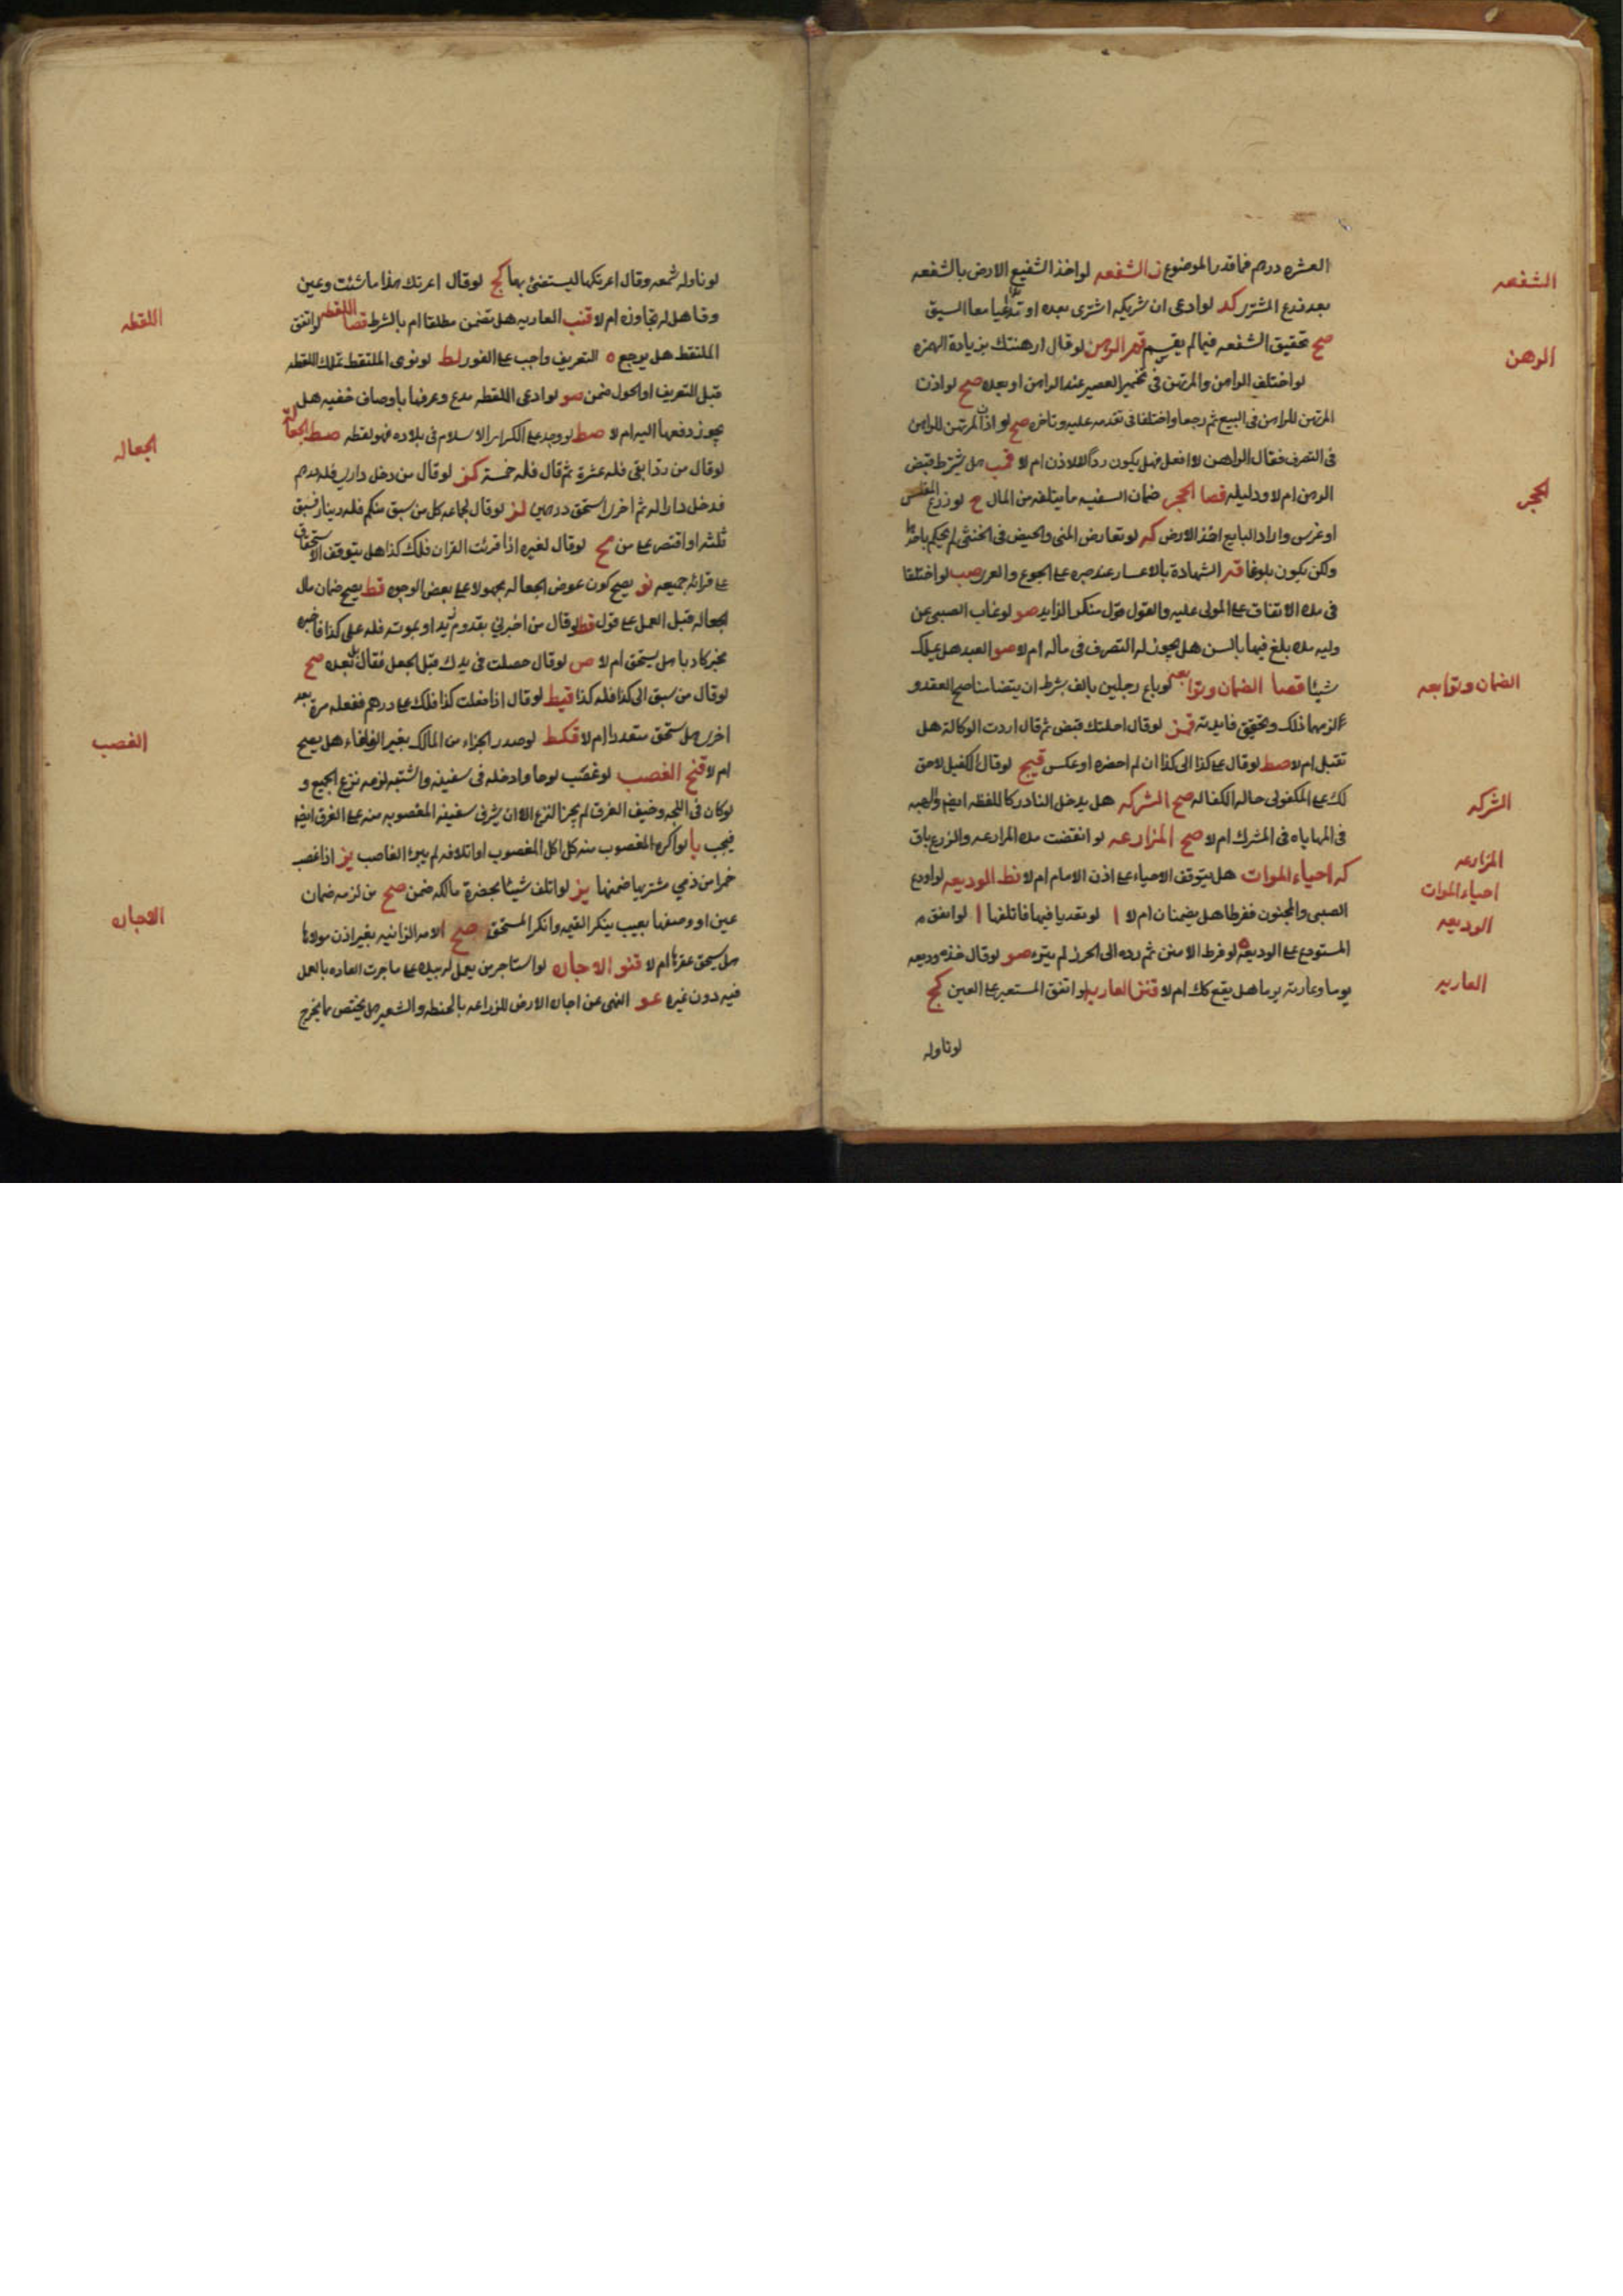 العشره درهم فما قدر الموضوع الشفعه لو اخذ الشفيع الارض بالشفعه
الشفعه
بعد زرع المشتر كد لو ادعى ان شريكه اشترى بعده او تداعيا معا السبق
صح تحقيق الشفعه فيما لم يقسم الرهن لو قال ارهنتك بزيادة الهمزه
الرهن
لو اختلف الراهن والمرتهن فى تخمير العصير عند الراهن او بعده صح لو اذن
المرتهن للراهن فى البيع ثم رجعا واختلفا فى تقدمه عليه وتاخر صح لو اذن المرتهن للراهن
فى التصرف فقال الراهن لا افعل فهل يكون ردًّا للاذن ام لا قمب هل يشترط قبض
الرهن ام لا ودليله قصا الحجر ضمان السفيه ما يتلفه من المال ح لو زرع المفلس
الحجر
او غرس واراد البايع اخذ الارض كه لو تعارض المنى والحيض فى الخنثى لم يحكم باحدهما
ولكن يكون بلوغا الشهادة بالاعسار عند صبره على الجوع والعرى صب لو اختلفا
فى مدة الانفاق على المولى عليه والقول قول منكر الزايد صو لو غاب الصبى عن
وليه مدة بلغ فيها بالسن هل يجوز له التصرف فى ماله ام لا صو العبد هل يملك
شيئا قصا الضمان وتوابعه لو باع رجلين بالف بشرط ان يتضامنا صح العقد و
الضمان وتوابعه
لزمهما ذلك وتحقيق فايدته قمز لو قال احلتك فقبض ثم قال اردت الوكالة هل
تقبل ام لا صط لو قال على كذا الى كذا ان لم احضره او عكس قيح لو قال الكفيل لا حق
لك على المكفول حالة الكفاله صح الشركه هل يدخل النادر كاللقطه ايض والهبه
الشركه
فى المهاياه فى المشترك ام لا صح المزارعه لو انقضت مدة المزارعه والزرع باق
المزارعه
كه احياء الموات هل يتوقف الاحياء على اذن الامام ام لا نط الوديعه لو اودع
احياء الموات
الصبى والمجنون ففرطا هل يضمنان ام لا ا لو تعديا فيها فاتلفها ا لو انفق
الوديعه
المستودع على الوديعه لو فرط الامين ثم رده الى الحرز لم يبرء صو لو قال خذه وديعه
يوما وعارية يوما هل يقع كك ام لا قنز العاريه لو اتفق المستعير على العين كح
العاريه
لو ناوله
لو ناوله شمعه وقال اعرتكها ليستضئ بها كح لو قال اعرتك هذا ما شئت وعين
وقتا هل له تجاوزه ام لا قنب العاريه هل تضمن مطلقا ام بالشرط قصا اللقطه لو انفق
اللقطه
الملتقط هل يرجع ه التعريف واجب على الفور لط لو نوى الملتقط تملك اللقطه
قبل التعريف او الحول ضمن صو لو ادعى اللقطه مدع وعرفها باوصاف خفيه هل
يجوز دفعها اليه ام لا صط لو وجد على دار الاسلام فى بلاده فهو لقطه صط الجعاله
الجعاله
لو قال من رد ابقى فله عشرة ثم قال فله خمسة كز لو قال من دخل دارى فله درهم
فدخل دارا له ثم اخرى استحق درهمين لز لو قال لجماعه كل من سبق منكم فله دينار فسبق
ثلثه او اقتصر على من مح لو قال لغيره اذا قرئت القران فلك كذا هل يتوقف الاستحقاق
على قرائة جميعه نو يصح كون عوض الجعاله مجهولا على بعض الوجوه قط يصح ضمان مال
الجعاله قبل العمل على قول قط لو قال من اخبرنى بقدوم زيد او بموته فله على كذا فاخبره
مخبر كاذبا هل يستحق ام لا ص لو قال حصلت فى يدك قبل الجعل فقال بل بعده صح
لو قال من سبق الى كذا فله كذا قيط لو قال اذا فعلت كذا فلك على درهم ففعله مرة بعد
اخرى هل يستحق متعددا ام لا قكط لو صدر الجزاء من المالك بغير الفاء هل يصح
الغصب
ام لا قنح الغصب لو غصب لوحا وادخله فى سفينه واشتبه لزمه نزع الجميع و
لو كان فى اللجه وخيف الغرق لم يجز النزع الا ان يشرف سفينة المغصوب منه على الغرق ايض
فيجب يا لو اكره المغصوب منه كل اكل المغصوب او اتلافه لم يبرء الغاصب يز اذا غصب
خمرا من ذمي مستتر بها ضمنها يز لو اتلف شيئا بحضرة مالكه ضمن صح من لزمه ضمان
عين او وصفها بعيب ينكر القيمه وانكر المستحق صح الامه الزانيه بغير اذن مولاها
الاجاره
هل يستحق عقرها ام لا قنو الاجاره لو استاجر من يعمل له بيده على ما جرت العاده بالعمل
فيه دون غيره عو النهى عن اجارة الارض للزراعه بالحنطه والشعير هل يختص بما يخرج